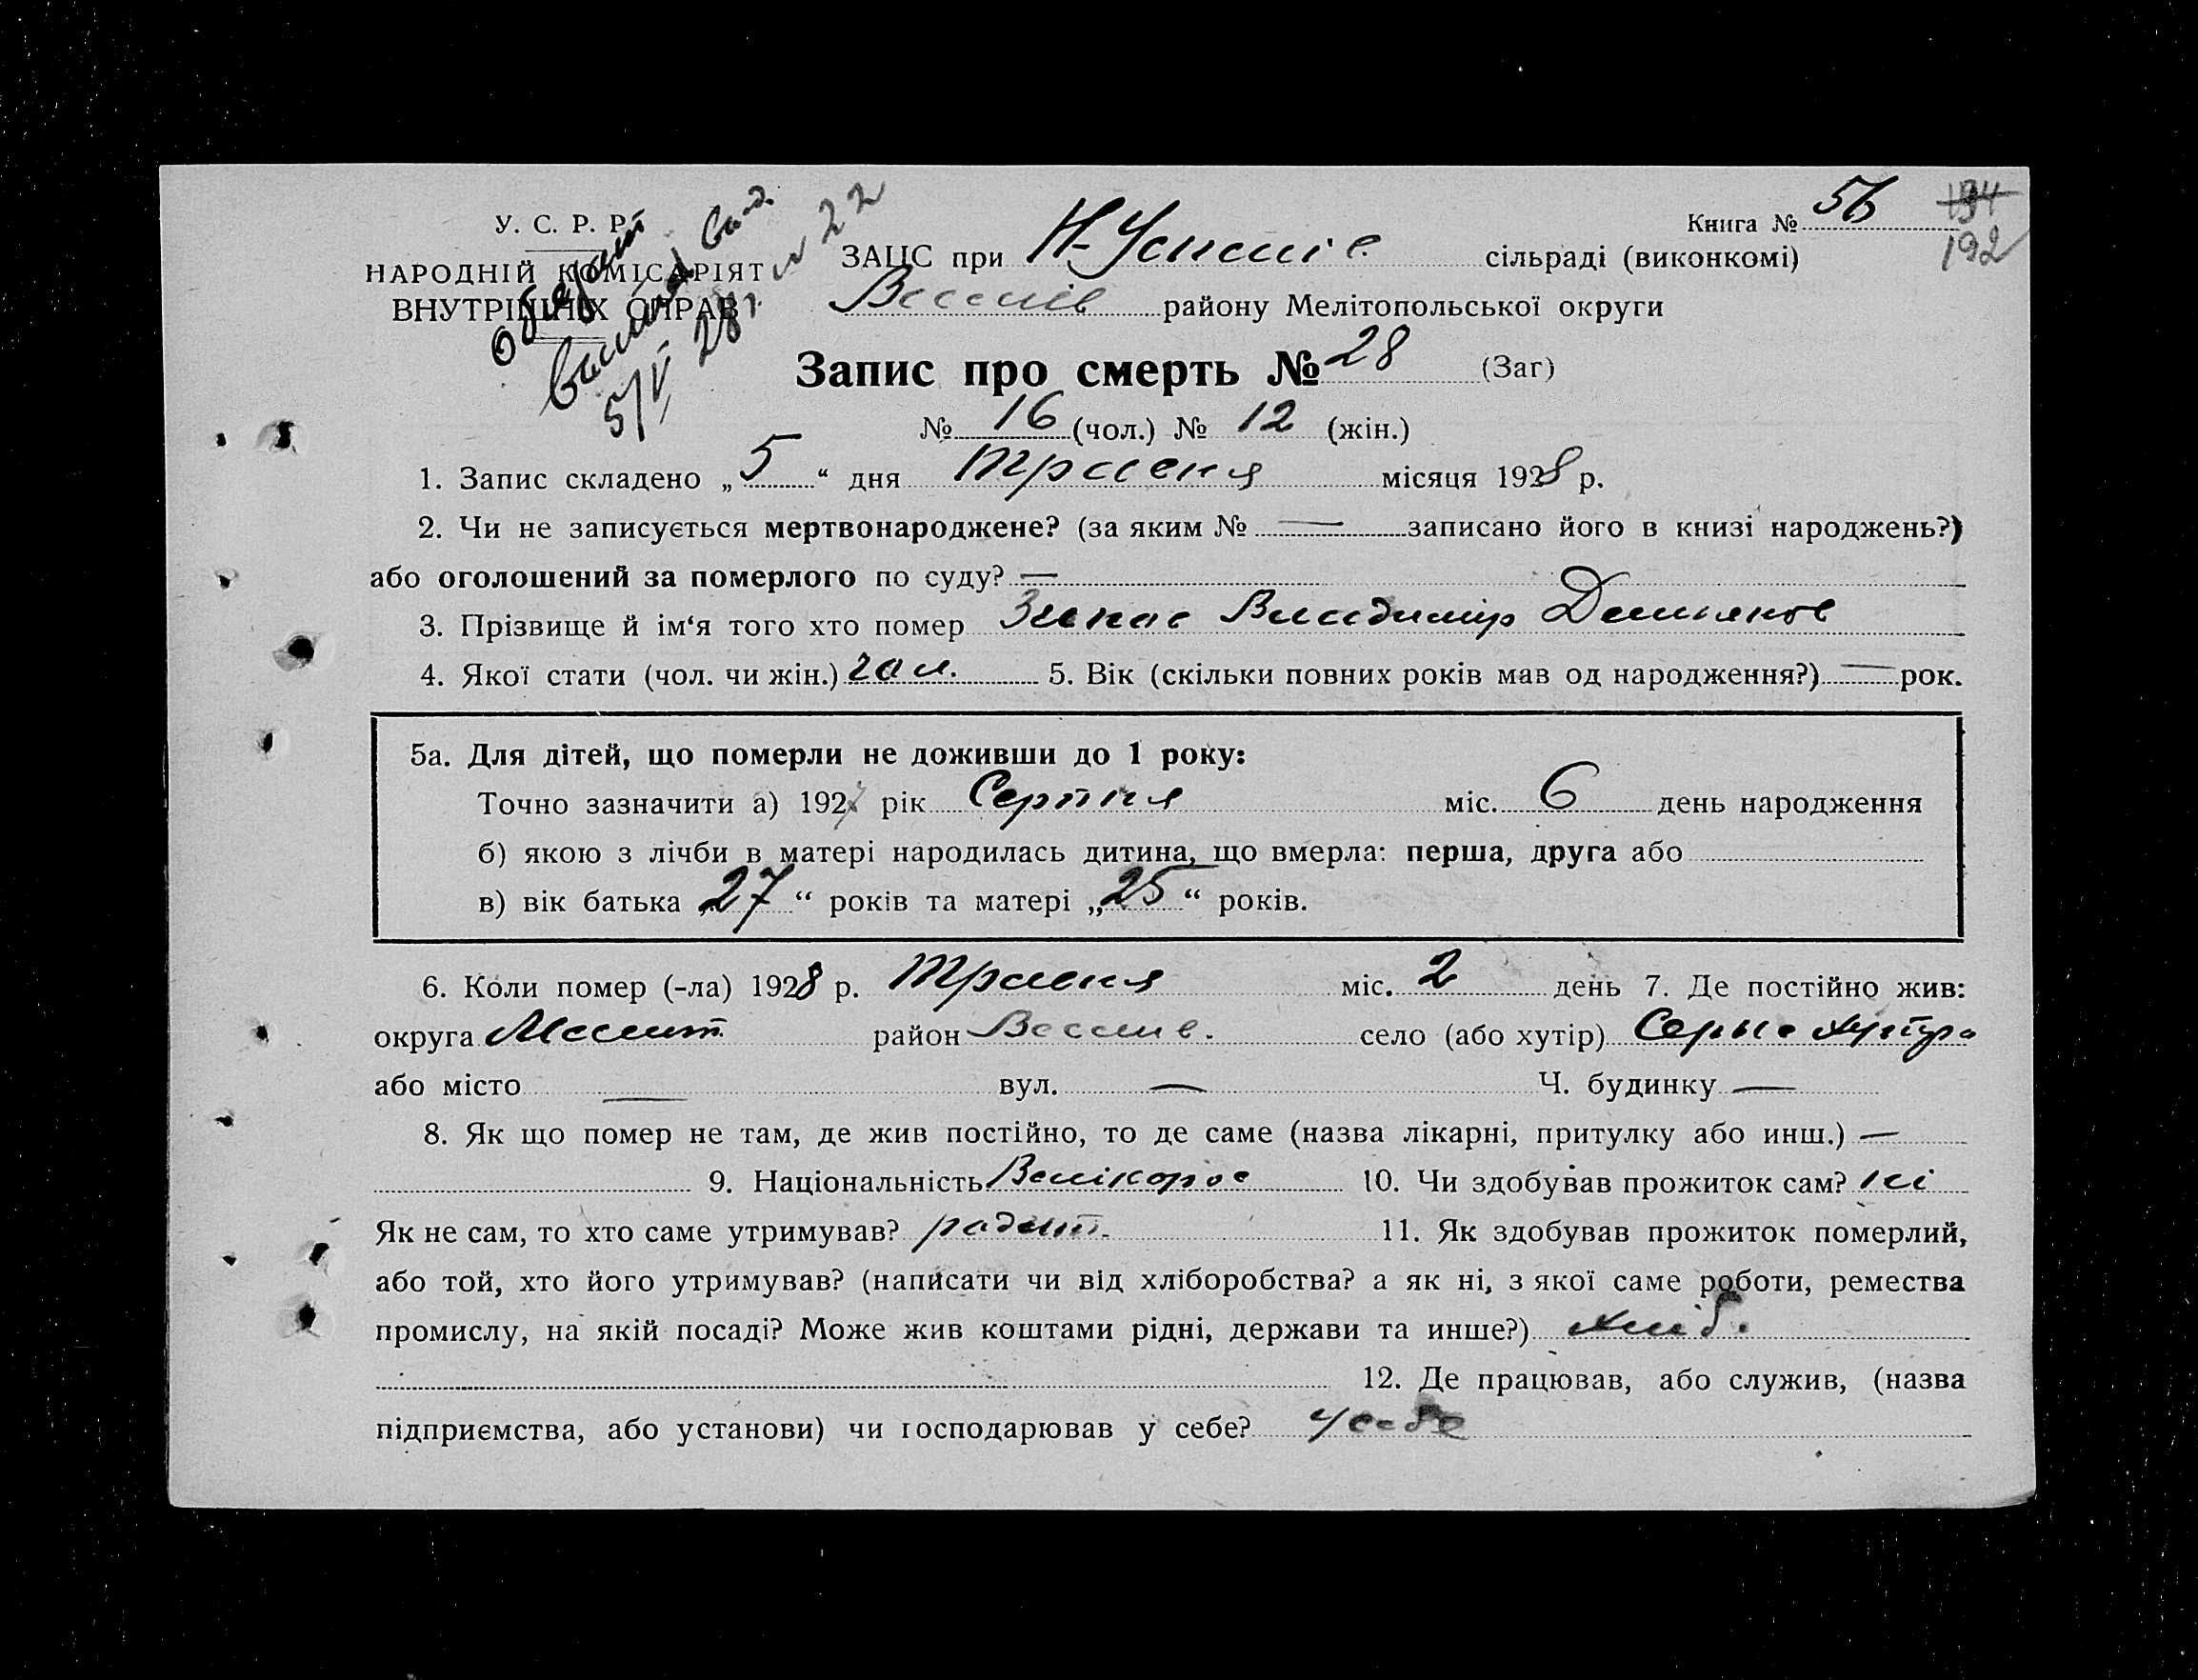 У. С. Р. Р.
НАРОДНІЙ КОМІСАРІЯТ
ВНУТРІШНІХ СПРАВ
5/V 28 г. № 22
Книга № 56
194
192
ЗАЦС при Н-Успенів сільраді (виконкомі)
Веселів району Мелітопольської округи
Запис про смерть № 28 (Заг)
№ 16 (чол.) № 12 (жін.)
1. Запис складено „5“ дня травня місяця 1928 р.
2. Чи не записується мертвонароджене? (за яким № — записано його в книзі народжень?)
або оголошений за померлого по суду? —
3. Прізвище й ім‘я того хто помер Владимир Демьянов
4. Якої стати (чол. чи жін.) чол. 5. Вік (скільки повних років мав од народження?) — рок.
5а. Для дітей, що померли не доживши до 1 року:
Точно зазначити а) 1927 рік Серпня міс. 6 день народження
б) якою з лічби в матері народилась дитина, що вмерла: перша, друга або
в) вік батька „27“ років та матері „25“ років.
6. Коли помер (-ла) 1928 р. травня міс. 2 день 7. Де постійно жив:
округа Мелит. район Веселів. село (або хутір) Серые хутора
або місто — вул. — Ч. будинку —
8. Як що помер не там, де жив постійно, то де саме (назва лікарні, притулку або инш.) —
9. Національність Велікорос 10. Чи здобував прожиток сам? ні
Як не сам, то хто саме утримував? родит. 11. Як здобував прожиток померлий,
або той, хто його утримував? (написати чи від хліборобства? а як ні, з якої саме роботи, ремества
промислу, на якій посаді? Може жив коштами рідні, держави та инше?) хліб.
12. Де працював, або служив, (назва
підприємства, або установи) чи господарював у себе? у себе